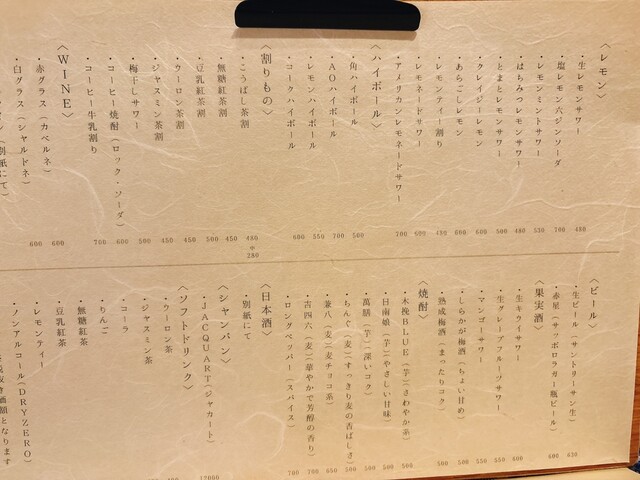 〈レモン〉
・生レモンサワー 480
・塩レモン六ジンソーダ 700
・レモンミントサワー 530
・はちみつレモンサワー 480
・とまとレモンサワー 500
・クレイジーレモン 600
・あらごしレモン 600
・レモンティー割り 430
・レモネードサワー 600
・アメリカンレモネードサワー 700
〈ハイボール〉
・角ハイボール 500
・AOハイボール 700
・レモンハイボール 550
・コークハイボール 600
〈割りもの〉
・こうばし茶割 480
280
・無糖紅茶割 450
・豆乳紅茶割 500
・ウーロン茶割 450
・ジャスミン茶割 450
・梅干しサワー 500
・コーヒー焼酎(ロック・ソーダ) 600
・コーヒー牛乳割り 700
〈WINE〉
・赤グラス(カベルネ) 600
・白グラス(シャルドネ) 600
(別紙にて)
〈ビール〉
・生ビール(サントリーサン生) 430
・赤星(サッポロラガー瓶ビール) 600
〈果実酒〉
・生キウイサワー 600
・生グレープフルーツサワー 550
・マンゴーサワー 550
・しらかが梅酒(ちょい甘め) 500
・熟成梅酒(まったりコク) 500
〈焼酎〉
・木挽BLUE(芋)さわやか系) 500
・日南娘(芋)やさしい甘味) 500
・萬膳(芋)深いコク) 500
・ちんぐ(麦)すっきり麦の香ばしさ) 500
・兼八(麦)麦チョコ系) 650
・吉四六(麦)華やかで芳醇の香り) 700
・ロングペッパー(スパイス) 700
〈日本酒〉
・別紙にて
〈シャンパン〉
・JACQUART(ジャカート) 12000
〈ソフトドリンク〉
・ウーロン茶
・ジャスミン茶
・コーラ
・りんご
・無糖紅茶
・豆乳紅茶
・レモンティー
・ノンアルコール(DRYZERO)
税抜き価額となります